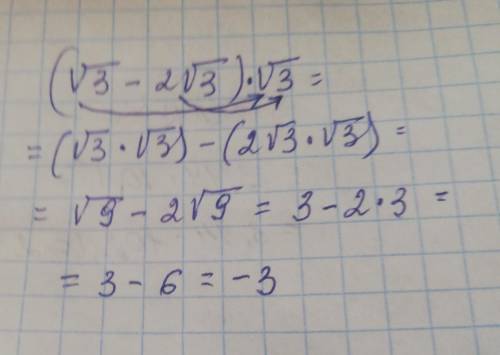 (√3 − 2√3)·√3 =
= (√3 · √3) − (2√3 · √3) =
= √9 − 2√9 = 3 − 2·3 =
= 3 − 6 = −3